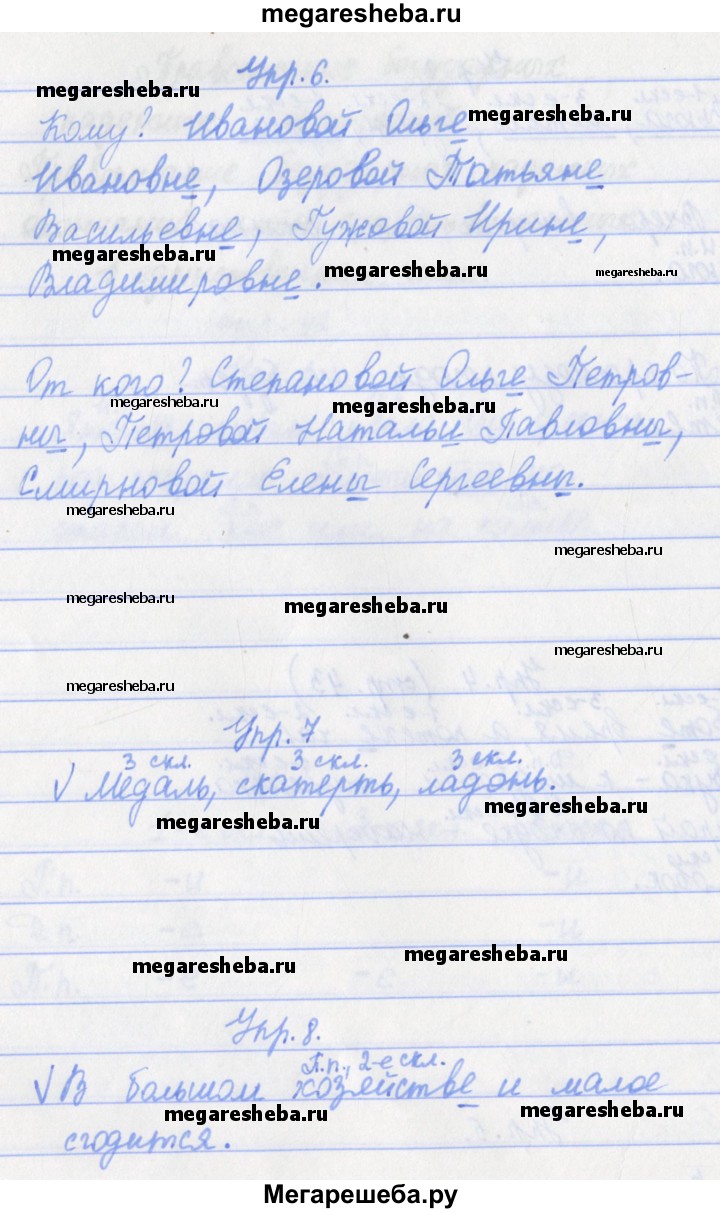 megaresheba.ru
Упр. 6.
megaresheba.ru
Кому? Ивановой Ольге
megaresheba.ru
Ивановне, Озеровой Татьяне
Васильевне, Гужовой Ирине,
megaresheba.ru
megaresheba.ru
megaresheba.ru
Владимировне.
От кого? Степановой Ольге Петров-
megaresheba.ru
megaresheba.ru
ны, Петровой Натальи Павловны,
Смирновой Елены Сергеевны.
megaresheba.ru
megaresheba.ru
megaresheba.ru
megaresheba.ru
megaresheba.ru
megaresheba.ru
Упр. 7
3 скл. 3 скл. 3 скл.
√ Медаль, скатерть, ладонь.
megaresheba.ru
megaresheba.ru
megaresheba.ru
megaresheba.ru
Упр. 8.
П.п., 2-е скл.
√ В большом хозяйстве и малое
megaresheba.ru
megaresheba.ru
сгодится.
Мегарешеба.ру